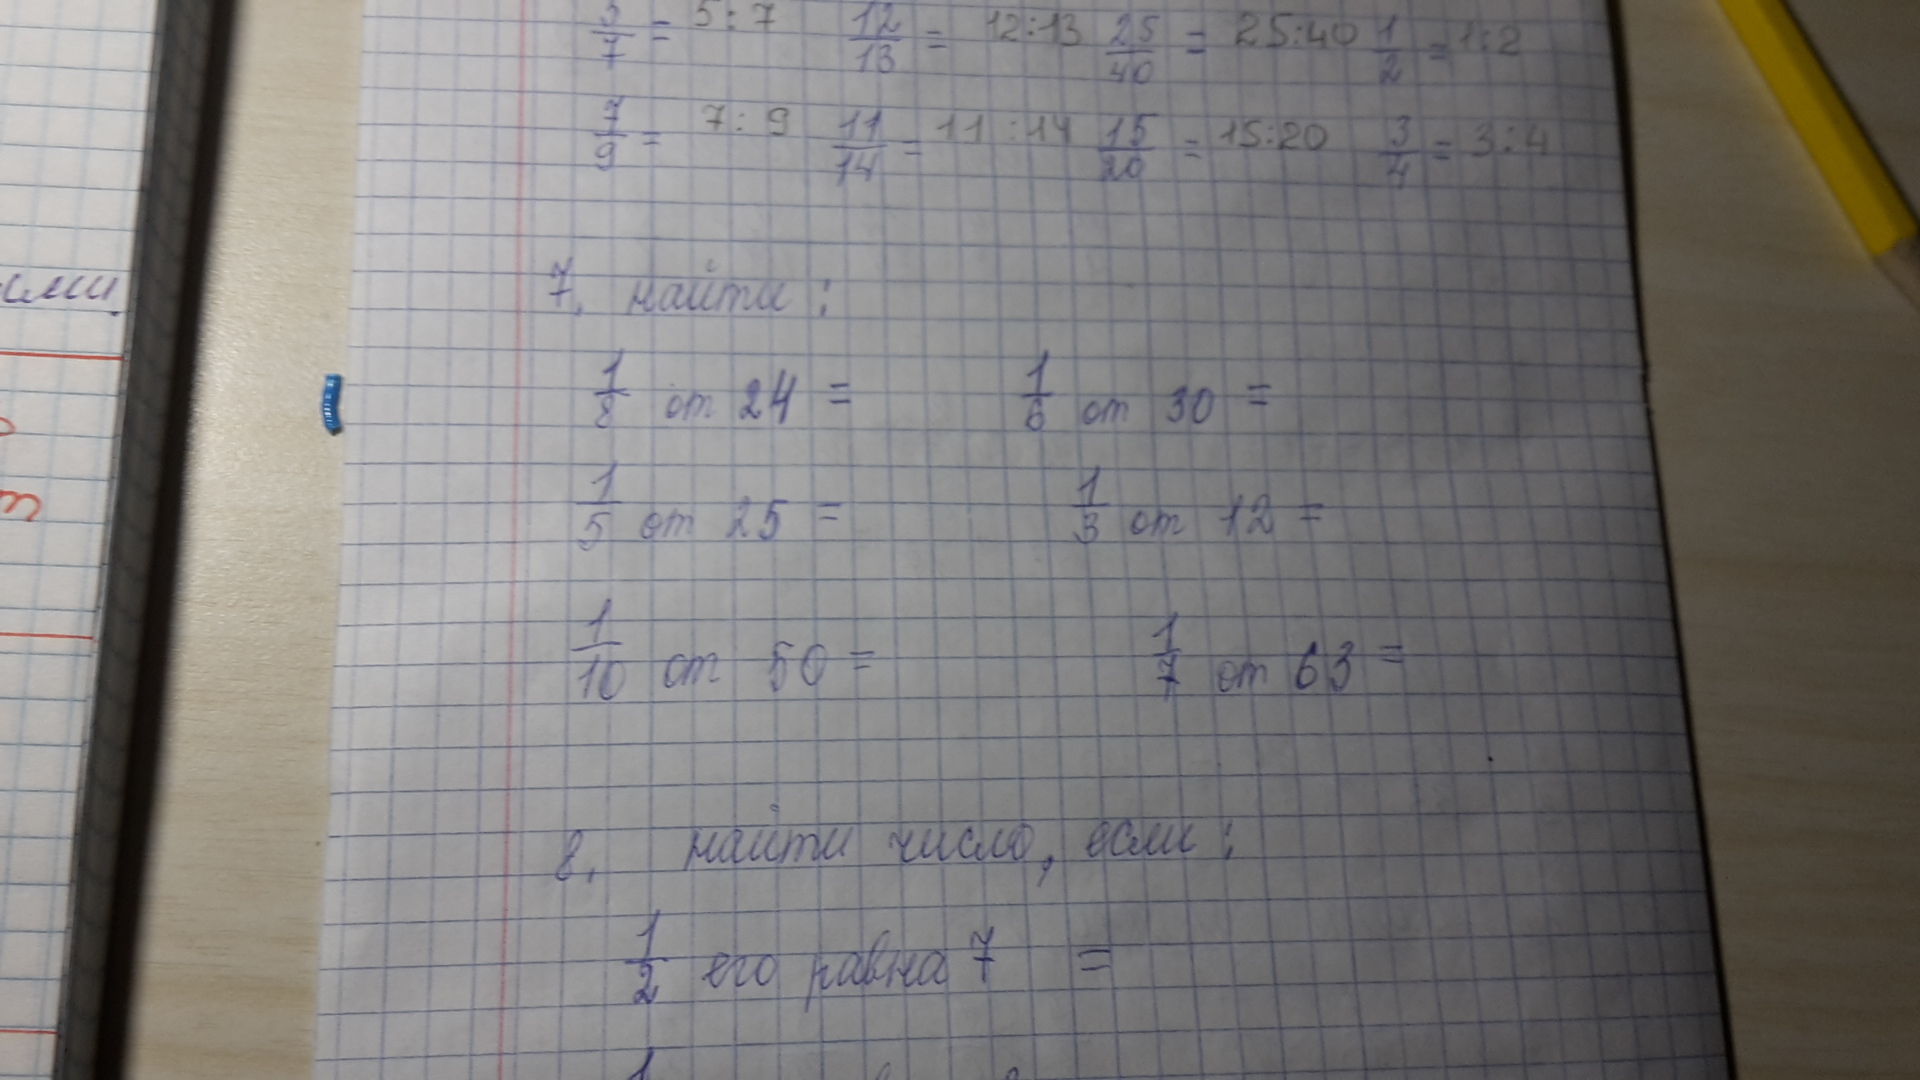 5/7 = 5:7 12/13 = 12:13 25/40 = 25:40 1/2 = 1:2
7/9 = 7:9 11/14 = 11:14 15/20 = 15:20 3/4 = 3:4
7. найти:
1/8 от 24 = 1/6 от 30 =
1/5 от 25 = 1/3 от 12 =
1/10 от 50 = 1/7 от 63 =
8. найти число, если:
1/2 его равна 7 =